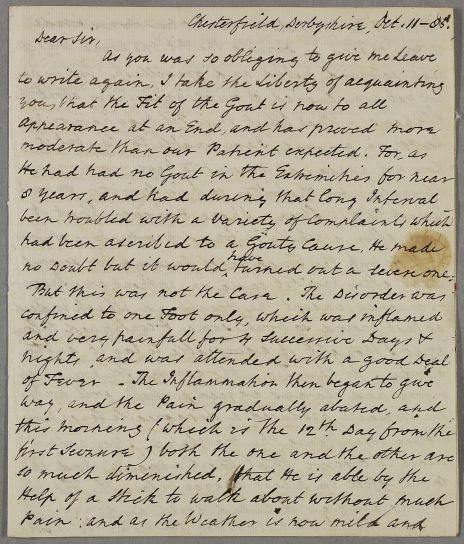 Chesterfield, Derbyshire, Oct. 11 -
Dear Sir,
As you was so obliging to give me Leave
to write again, I take the Liberty of acquainting
you, that the Fit of the Gout is now to all
Appearance at an End, and has proved more
moderate than our Patient expected. For, as
He had had no Gout in the Extremities for near
8 years, and had during that long Interval
been troubled with a Variety of Complaints which
had been ascribed to a Gouty Cause, He made
no Doubt but it would have turned out a severe one.
But this was not the Case. The Disorder was
confined to one Foot only, which was inflamed
and very painfull for 4 Successive Days &
Nights, and was attended with a good Deal
of Fever - The Inflammation then began to give
way, and the Pain gradually abated, and
this morning (which is the 12th Day from the
first Seizure) both the one and the other are
so much diminished, that He is able by the
Help of a Stick to walk about without much
Pain: and as the Weather is now mild and